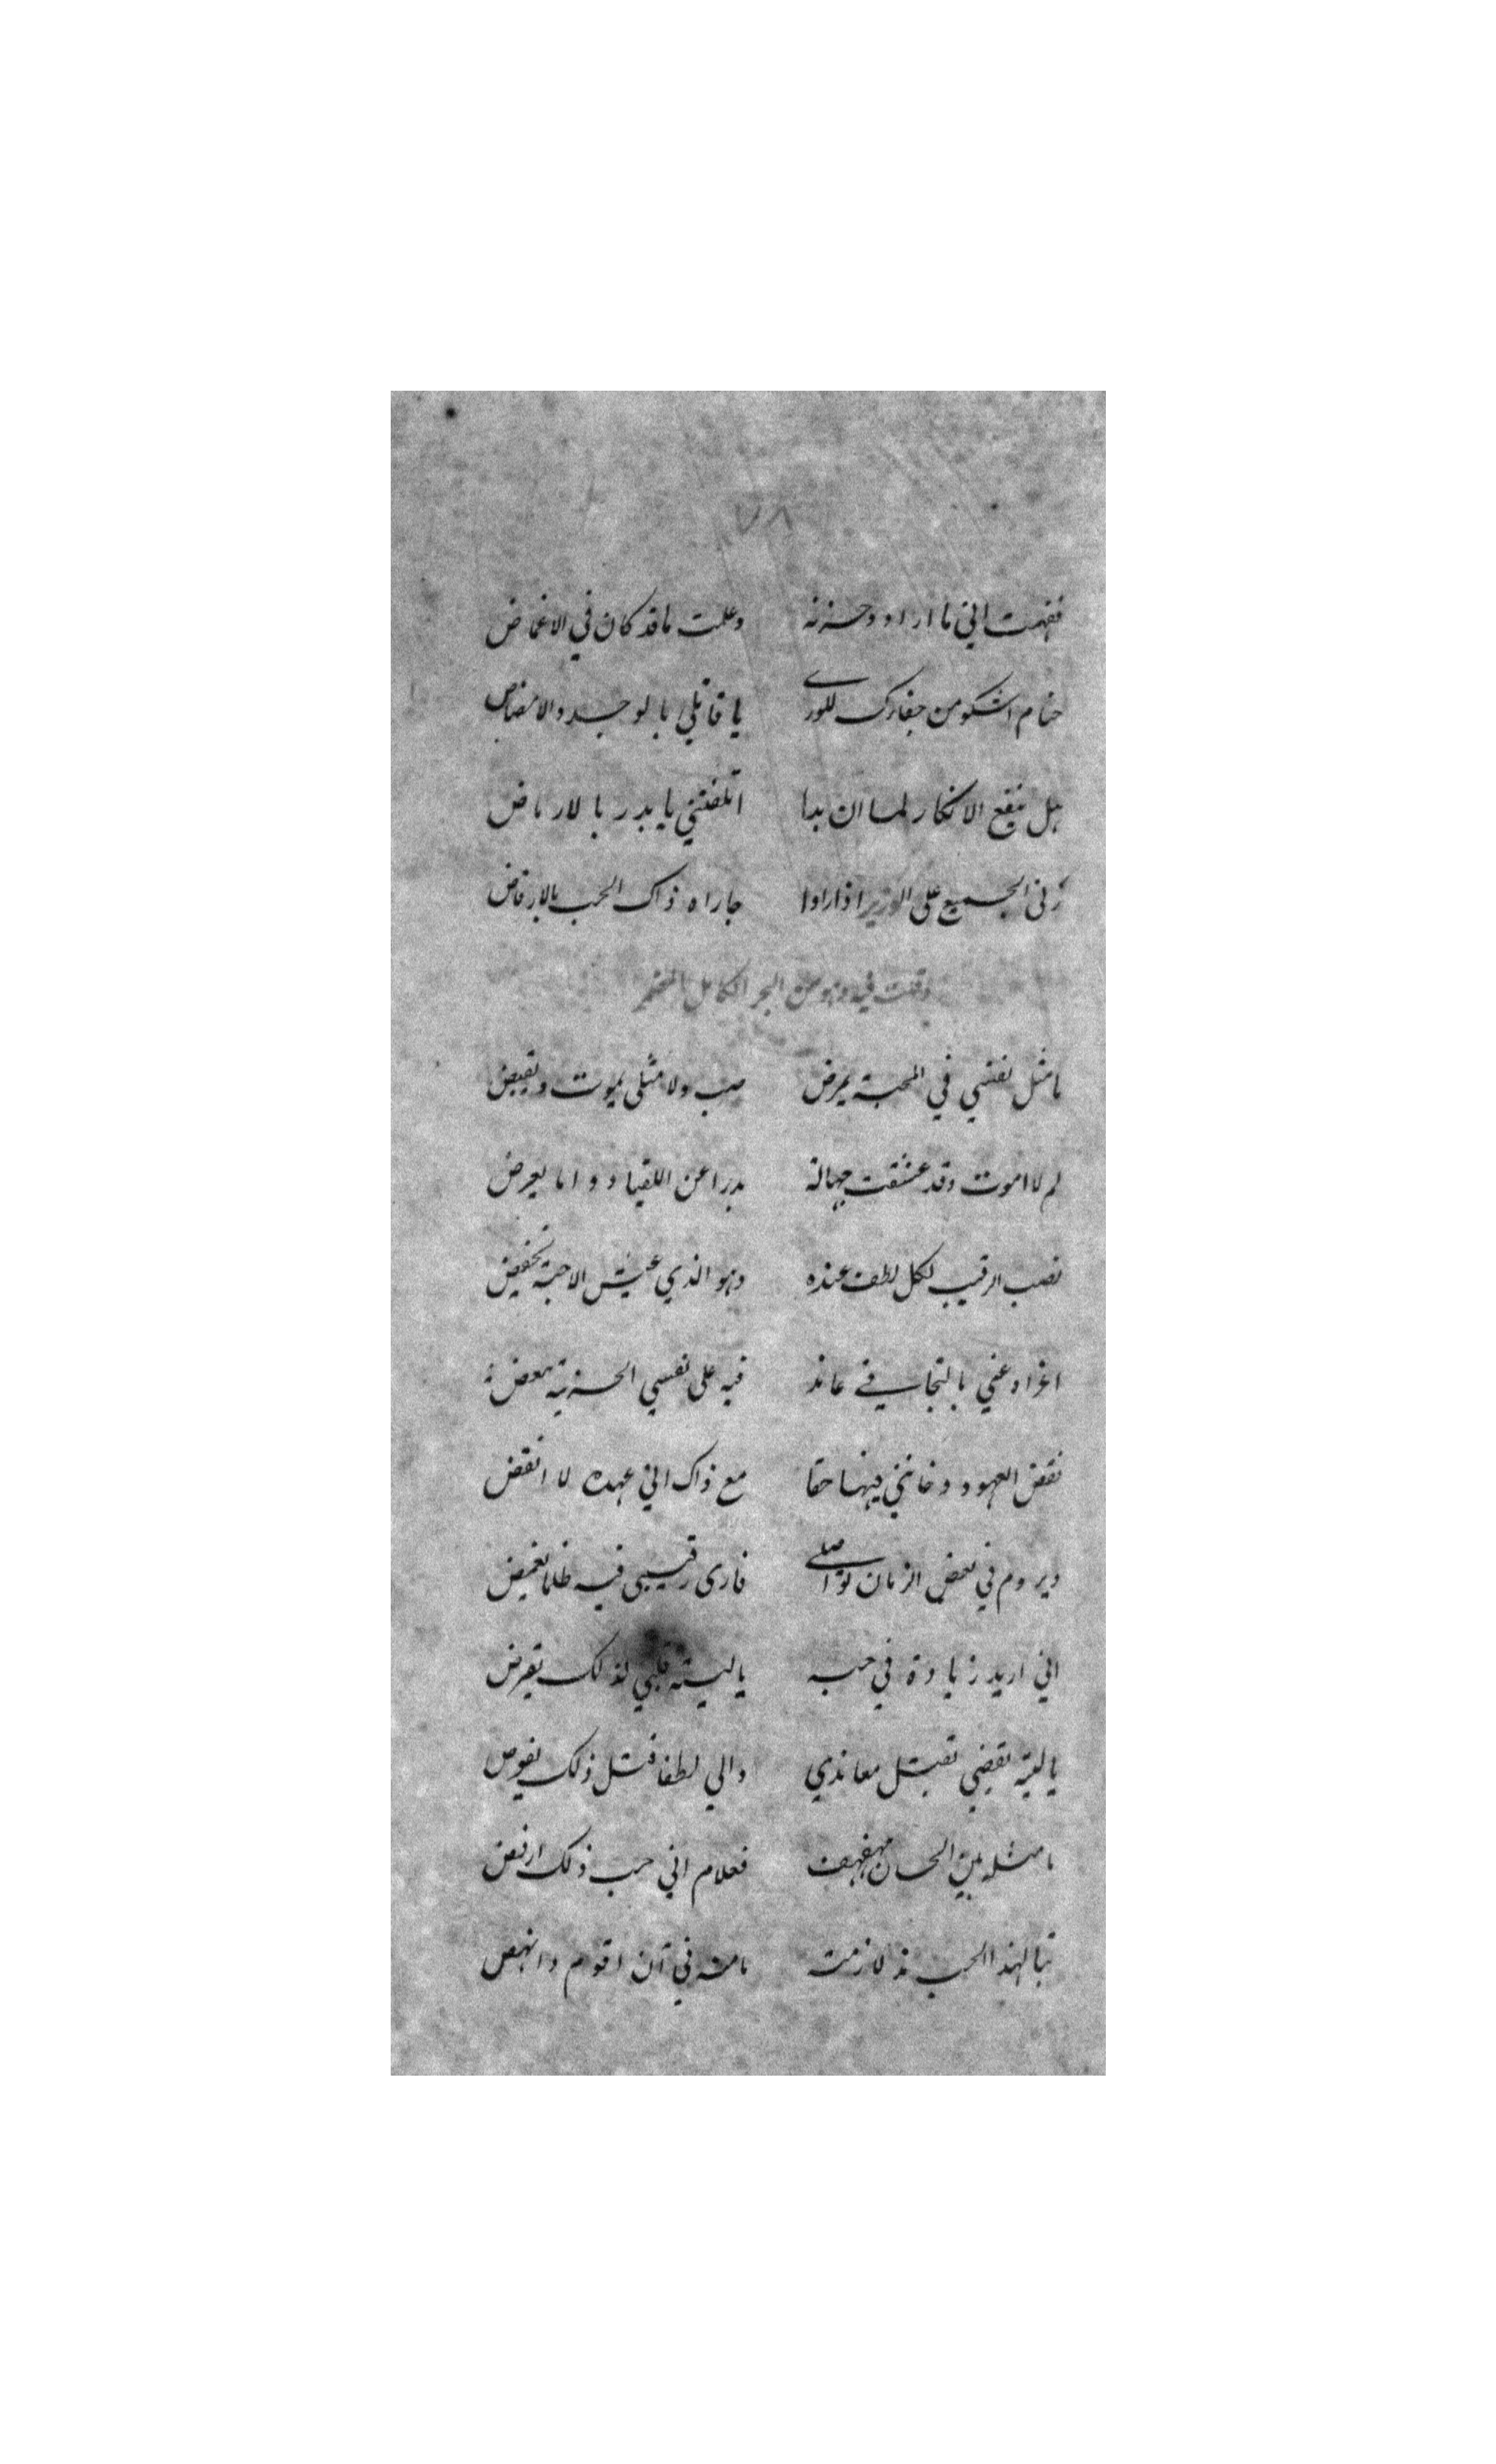 ٧٨
ففهمت اني ما اراد وحزنه وعلمت ماقد كان في الاغماض
حتام اشكو من جفاك للورى يا قاتلي بالوجد والامضاض
هل ينفع الانكار لما ان بدا اتلفتني يا بدر بالارماض
الجميع على الوزير اذا رادا جاراه ذاك الحب بالارفاض
وقلت فيه وهو من البحر الكامل المضمر
ما مثل نفسي في المحبة يمرض صب ولا مثلى يموت ويقبض
لم لا اموت وقد عشقت جهالة بدرا عن اللقيا دواما يعرض
نصب الرقيب لكل لطف عنده وهو الذي عيش الاحبة يخفض
عني بالتجافي عاند فيه على نفسي الحزينة
نقض العهود وخانني فيها حقا مع ذاك اني عهده لا انقض
ويروم في بعض الزمان تواصلي فارى رقيبي فيه ظلما يغمض
اني اريد زيادة في حبه ياليته قلبي لذلك يقرض
ياليته يقضي بقتل معاندي والي لطفا قتل ذلك يفوض
ما مثله بين الحسان مهفهف فعلام اني حب ذلك ارفض
تبا لهذا الحب مذ لازمته ما منه في آن اقوم وانهض